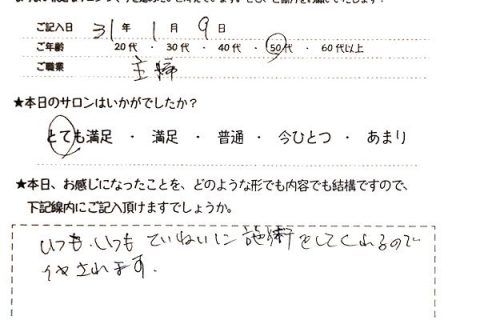 ご記入日 31年 1月 9日
ご年齢 20代 ・ 30代 ・ 40代 ・ 50代 ・ 60代以上
ご職業 主婦
★本日のサロンはいかがでしたか？
とても満足 ・ 満足 ・ 普通 ・ 今ひとつ ・ あまり
★本日、お感じになったことを、どのような形でも内容でも結構ですので、
下記線内にご記入頂けますでしょうか。
いつも、いつも ていねいに 施術をしてくれるので
イヤされます.